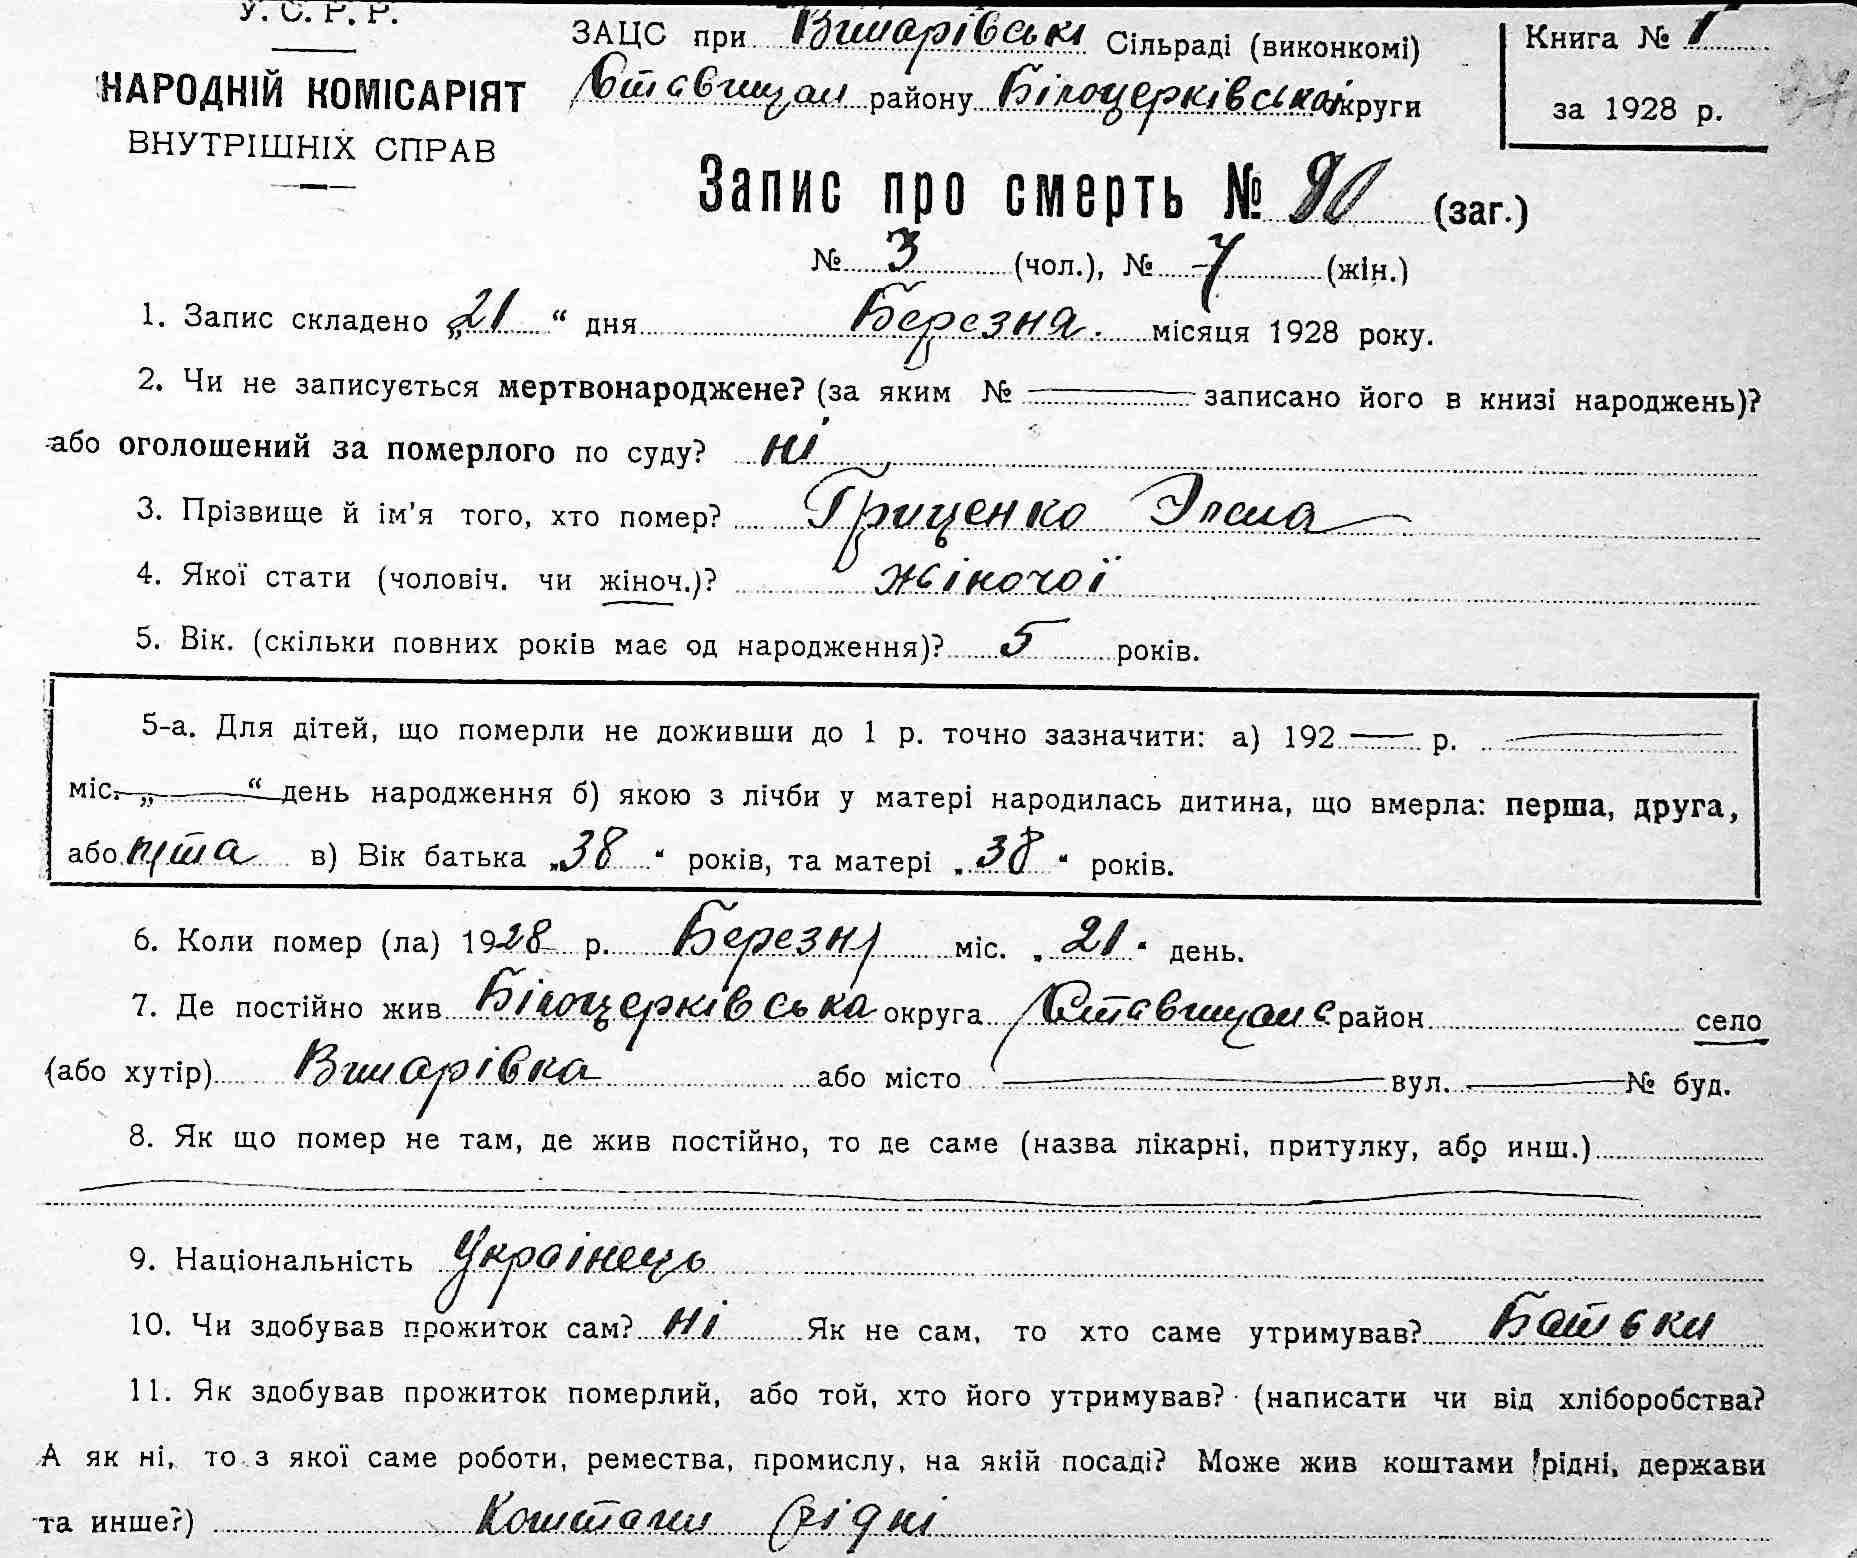 У. С. Р. Р.
НАРОДНІЙ КОМІСАРІЯТ
ВНУТРІШНІХ СПРАВ
ЗАЦС при Вшарівські Сільраді (виконкомі)
Ставищан району Білоцерківської округи
Книга № 1
за 1928 р.
Запис про смерть № 10 (заг.)
№ 3 (чол.), № 7 (жін.)
1. Запис складено „21“ дня Березня. місяця 1928 року.
2. Чи не записується мертвонароджене? (за яким № — записано його в книзі народжень)?
або оголошений за померлого по суду? ні
3. Прізвище й ім'я того, хто помер? Гриценко
4. Якої стати (чоловіч. чи жіноч.)? жіночої
5. Вік. (скільки повних років має од народження)? 5 років.
5-а. Для дітей, що померли не доживши до 1 р. точно зазначити: а) 192 — р. —
міс. „—“ день народження б) якою з лічби у матері народилась дитина, що вмерла: перша, друга,
або пята в) Вік батька „38“ років, та матері „38“ років.
6. Коли помер (ла) 1928 р. Березня міс. „21“ день.
7. Де постійно жив Білоцерківська округа Ставищанс район село
(або хутір) Вшарівка або місто — вул. — № буд.
8. Як що помер не там, де жив постійно, то де саме (назва лікарні, притулку, або инш.)
9. Національність Українець
10. Чи здобував прожиток сам? ні Як не сам, то хто саме утримував? Батьки
11. Як здобував прожиток померлий, або той, хто його утримував? (написати чи від хліборобства?
А як ні, то з якої саме роботи, ремества, промислу, на якій посаді? Може жив коштами рідні, держави
та инше?) Коштами рідні